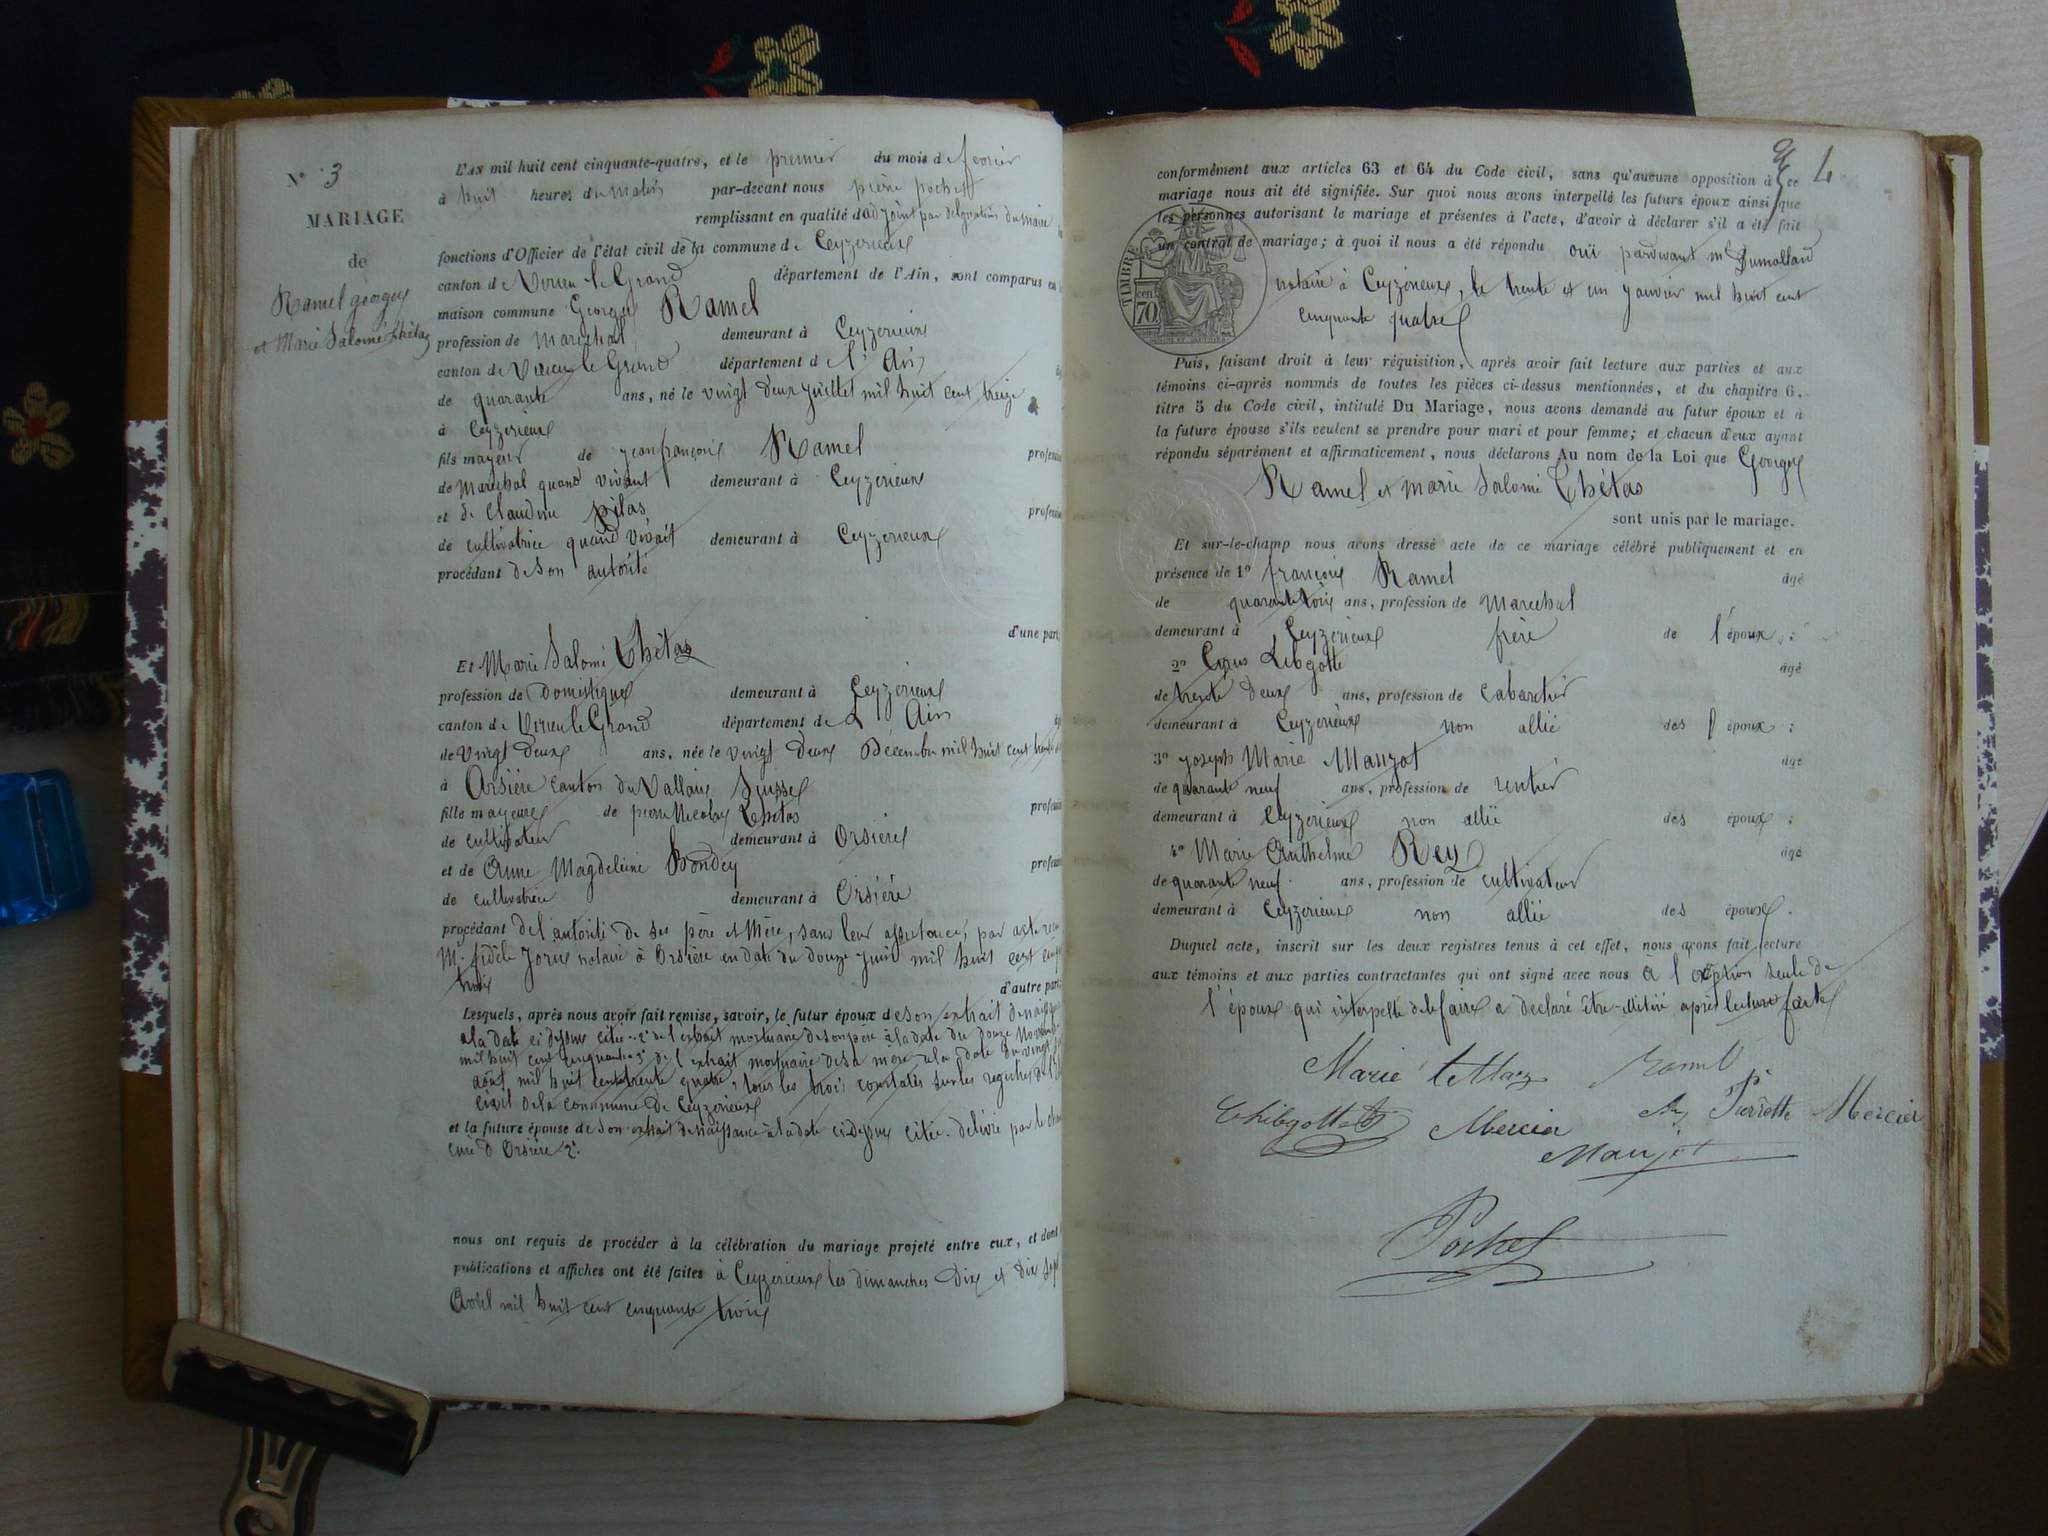 N.° 3
MARIAGE
de
Ramel georges
et Marie Salomé Thétaz
L'AN mil huit cent cinquante-quatre, et le premier du mois de février
à huit heures du matin par-devant nous pierre pochet
remplissant en qualité d'adjoint par délégation du maire
fonctions d'Officier de l'état civil de la commune de Ceyzerieux
canton de Virieu le Grand département de l'Ain, sont comparus en
maison commune Georges Ramel
profession de maréchal demeurant à Ceyzerieux
canton de Virieu le Grand département de l'Ain
de quarante ans, né le vingt deux juillet mil huit cent treize
à Ceyzerieux
fils mayeur de jean françois Ramel profession
de maréchal quand vivant demeurant à Ceyzerieux
et de Claudine pilas profession
de cultivatrice quand vivait demeurant à Ceyzerieux
procédant de son autorité
d'une part
Et Marie Salomé Thétaz
profession de Domestique demeurant à Ceyzerieux
canton de Virieu le Grand département de L Ain
de vingt deux ans, née le vingt deux Décembre mil huit cent
à Orsière canton du Vallais Suisse
fille mayeure de pierre Nicolas Thétas profession
de cultivateur demeurant à Orsière
et de Anne Magdeleine profession
de cultivatrice demeurant à Orsière
procédant de l'autorité de ses père et Mère, sans leur assistance, par acte
M. fidèle Joris notaire à Orsière en date du douze juin mil huit cent
trois
d'autre part
Lesquels, après nous avoir fait remise, savoir, le futur époux de son extrait de naissance
a la date ci dessus citée 2° de l'extrait mortuaire de son père à la date du douze
mil huit cent cinquante 3° de l'extrait mortuaire de sa mère a la date du vingt
août mil huit cent trente quatre, tous les trois constatés sur les registres de l'état
civil de la commune de Ceyzerieux
et la future épouse de son extrait de naissance à la date ci dessus citée délivré par le
curé d Orsière 2°.
nous ont requis de procéder à la célébration du mariage projeté entre eux, et dont
publications et affiches ont été faites à Ceyzerieux les dimanches dix et dix sept
Avril mil huit cent cinquante trois
4
conformément aux articles 63 et 64 du Code civil, sans qu'aucune opposition à ce
mariage nous ait été signifiée. Sur quoi nous avons interpellé les futurs époux ainsi que
les personnes autorisant le mariage et présentes à l'acte, d'avoir à déclarer s'il a été fait
un contrat de mariage; à quoi il nous a été répondu oui pardevant me Dumollard
notaire à Ceyzérieux, le trente et un janvier mil huit cent
cinquante quatre
TIMBRE
70 cen
Puis, faisant droit à leur réquisition, après avoir fait lecture aux parties et aux
témoins ci-après nommés de toutes les pièces ci-dessus mentionnées, et du chapitre 6,
titre 5 du Code civil, intitulé Du Mariage, nous avons demandé au futur époux et à
la future épouse s'ils veulent se prendre pour mari et pour femme; et chacun d'eux ayant
répondu séparément et affirmativement, nous déclarons Au nom de la Loi que Georges
Ramel et marie Salomé Thétas
sont unis par le mariage.
Et sur-le-champ nous avons dressé acte de ce mariage célébré publiquement et en
présence de 1° françois Ramel âgé
de quarante trois ans, profession de maréchal
demeurant à Ceyzerieux frère de l'époux ;
2° Libgotte âgé
de trente deux ans, profession de cabaretier
demeurant à Ceyzerieux non allié des époux ;
3° joseph Marie Maujot âgé
de quarante neuf ans, profession de rentier
demeurant à Ceyzerieux non allié des époux ;
4° Marie Anthelme Rey âgé
de quarante neuf ans, profession de cultivateur
demeurant à Ceyzerieux non allié des époux.
Duquel acte, inscrit sur les deux registres tenus à cet effet, nous avons fait lecture
aux témoins et aux parties contractantes qui ont signé avec nous à l'exception seule de
l'époux qui interpellé de le faire a déclaré être illitéré après lecture faite
Marie Ramel
Mercier Pierrette Mercier
Maujot
Pochet